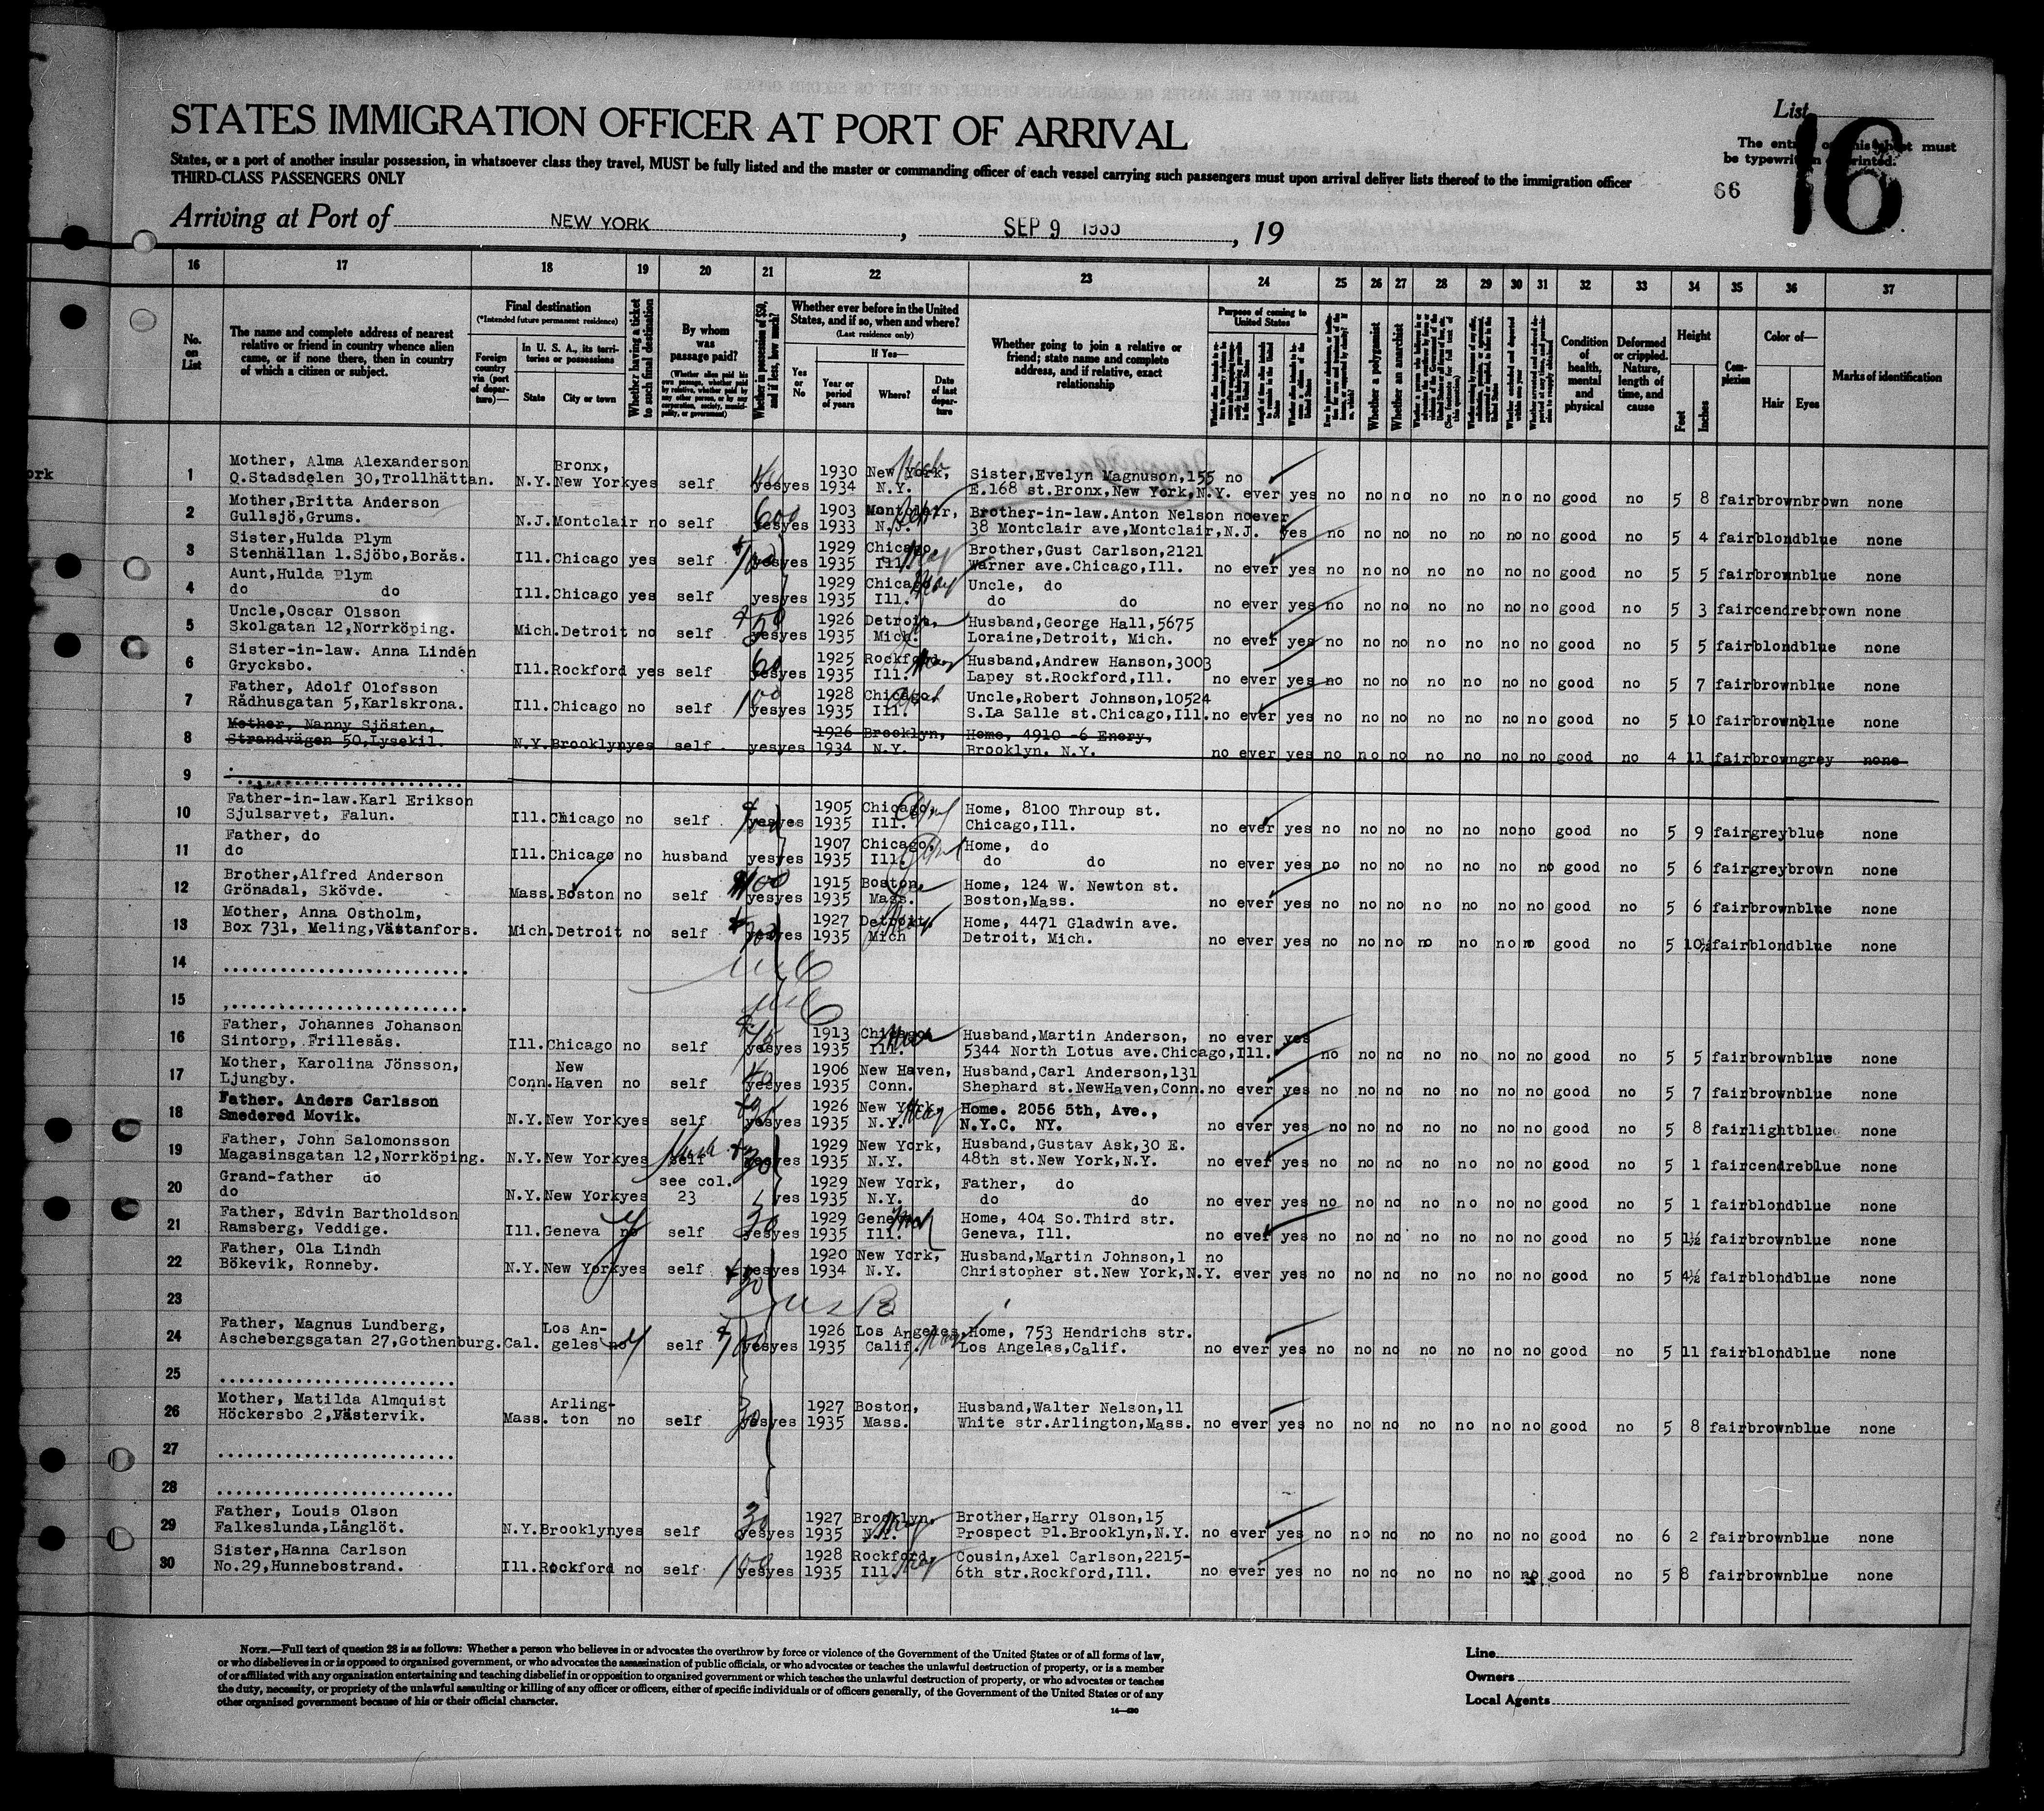 List
16
The entries on this sheet must
be typewritten or printed.
66
STATES IMMIGRATION OFFICER AT PORT OF ARRIVAL
States, or a port of another insular possession, in whatsoever class they travel, MUST be fully listed and the master or commanding officer of each vessel carrying such passengers must upon arrival deliver lists thereof to the immigration officer
THIRD-CLASS PASSENGERS ONLY
Arriving at Port of NEW YORK, SEP 9 1935, 19
16 17 18 19 20 21 22 23 24 25 26 27 28 29 30 31 32 33 34 35 36 37
No. on List
The name and complete address of nearest relative or friend in country whence alien came, or if none there, then in country of which a citizen or subject.
Final destination
(*Intended future permanent residence)
Foreign country via (port of departure)—
In U. S. A., its territories or possessions
State
City or town
Whether having a ticket to such final destination
By whom was passage paid?
(Whether alien paid his own passage, whether paid by relative, whether paid by any other person, or by any corporation, society, municipality, or government)
Whether in possession of $50, and if less, how much?
Whether ever before in the United States, and if so, when and where?
(Last residence only)
Yes or No
If Yes—
Year or period of years
Where?
Date of last departure
Whether going to join a relative or friend; state name and complete address, and if relative, exact relationship
Purpose of coming to United States
Whether a polygamist
Whether an anarchist
Condition of health, mental and physical
Deformed or crippled. Nature, length of time, and cause
Height
Feet
Inches
Complexion
Color of—
Hair
Eyes
Marks of identification
ork
1 Mother, Alma Alexanderson Bronx, 1930 New York, Sister,Evelyn Magnuson,155 no
Ö.Stadsdelen 30,Trollhättan. N.Y. New York yes self yes yes 1934 N.Y. E.168 st.Bronx,New York,N.Y. ever yes no no no no no no no good no 5 8 fair brown brown none
2 Mother,Britta Anderson 600 1903 Montclair, Brother-in-law.Anton Nelson no ever
Gullsjö,Grums. N.J. Montclair no self yes yes 1933 N.J. 38 Montclair ave,Montclair,N.J. yes no no no no no no no good no 5 4 fair blond blue none
3 Sister,Hulda Plym 1929 Chicago Brother,Gust Carlson,2121
Stenhällan 1.Sjöbo,Borås. Ill. Chicago yes self 100 yes yes 1935 Ill. Warner ave.Chicago,Ill. no ever yes no no no no no no no good no 5 5 fair brown blue none
4 Aunt,Hulda Plym 1929 Chicago Uncle, do
do do Ill. Chicago yes self yes yes 1935 Ill. do do no ever yes no no no no no no no good no 5 3 fair cendre brown none
5 Uncle,Oscar Olsson 1926 Detroit, Husband,George Hall,5675
Skolgatan 12,Norrköping. Mich. Detroit no self yes yes 1935 Mich. Loraine,Detroit, Mich. no ever yes no no no no no no no good no 5 5 fair blond blue none
6 Sister-in-law. Anna Linden 60 1925 Rockford Husband,Andrew Hanson,3003
Grycksbo. Ill. Rockford yes self yes yes 1935 Ill. Lapey st.Rockford,Ill. no ever yes no no no no no no no good no 5 7 fair brown blue none
7 Father, Adolf Olofsson 100 1928 Chicago Uncle,Robert Johnson,10524
Rådhusgatan 5,Karlskrona. Ill. Chicago no self yes yes 1935 Ill. S.La Salle st.Chicago,Ill. no ever yes no no no no no no no good no 5 10 fair brown blue none
8 Mother, Nanny Sjösten, 1926 Brooklyn, Home, 4910 -6 Enory,
Strandvägen 50,Lysekil. N.Y. Brooklyn yes self yes yes 1934 N.Y. Brooklyn, N.Y. no ever yes no no no no no no no good no 4 11 fair brown grey none
9
10 Father-in-law.Karl Erikson 1905 Chicago, Home, 8100 Throup st.
Sjulsarvet, Falun. Ill. Chicago no self yes yes 1935 Ill. Chicago,Ill. no ever yes no no no no no no no good no 5 9 fair grey blue none
11 Father, do 1907 Chicago, Home, do
do Ill. Chicago no husband yes yes 1935 Ill. do do no ever yes no no no no no no no good no 5 6 fair grey brown none
12 Brother,Alfred Anderson 100 1915 Boston, Home, 124 W. Newton st.
Grönadal, Skövde. Mass. Boston no self yes yes 1935 Mass. Boston,Mass. no ever yes no no no no no no no good no 5 6 fair brown blue none
13 Mother, Anna Ostholm, 1927 Detroit, Home, 4471 Gladwin ave.
Box 731, Meling,Västanfors. Mich. Detroit no self yes yes 1935 Mich Detroit, Mich. no ever yes no no no no no no no good no 5 10½ fair blond blue none
14
15
16 Father, Johannes Johanson 1913 Chicago Husband,Martin Anderson, no ever yes
Sintorp, Frillesås. Ill. Chicago no self 75 yes yes 1935 Ill. 5344 North Lotus ave.Chicago,Ill. no no no no no no no good no 5 5 fair brown blue none
17 Mother, Karolina Jönsson, New 40 1906 New Haven, Husband,Carl Anderson,131
Ljungby. Conn. Haven no self yes yes 1935 Conn. Shephard st.NewHaven,Conn. no ever yes no no no no no no no good no 5 7 fair brown blue none
18 Father. Anders Carlsson 1926 New York Home. 2056 5th, Ave.,
Smedered Movik. N.Y. New York yes self yes yes 1935 N.Y. N.Y.C. NY. no ever yes no no no no no no no good no 5 8 fair light blue none
19 Father, John Salomonsson 1929 New York, Husband,Gustav Ask,30 E.
Magasinsgatan 12,Norrköping. N.Y. New York yes self 30 yes yes 1935 N.Y. 48th st.New York,N.Y. no ever yes no no no no no no no good no 5 1 fair cendre blue none
20 Grand-father do see col. 1929 New York, Father, do
do N.Y. New York yes 23 yes 1935 N.Y. do do no ever yes no no no no no no no good no 5 1 fair blond blue none
21 Father, Edvin Bartholdson 30 1929 Geneva Home, 404 So.Third str.
Ramsberg, Veddige. Ill. Geneva no self yes yes 1935 Ill. Geneva, Ill. no ever yes no no no no no no no good no 5 1½ fair brown blue none
22 Father, Ola Lindh 1920 New York, Husband,Martin Johnson,1 no
Bökevik, Ronneby. N.Y. New York yes self 30 yes yes 1934 N.Y. Christopher st.New York,N.Y. ever yes no no no no no no no good no 5 4½ fair blond blue none
23
24 Father, Magnus Lundberg, Los An- 1926 Los Angeles, Home, 753 Hendrichs str.
Aschebergsgatan 27,Gothenburg. Cal. geles no self yes yes 1935 Calif. Los Angeles,Calif. no ever yes no no no no no no no good no 5 11 fair blond blue none
25
26 Mother, Matilda Almquist Arling- 30 1927 Boston, Husband,Walter Nelson,11
Höckersbo 2,Västervik. Mass. ton no self yes yes 1935 Mass. White str.Arlington,Mass. no ever yes no no no no no no no good no 5 8 fair brown blue none
27
28
29 Father, Louis Olson 30 1927 Brooklyn, Brother,Harry Olson,15
Falkeslunda,Långlöt. N.Y. Brooklyn yes self yes yes 1935 N.Y. Prospect Pl.Brooklyn,N.Y. no ever yes no no no no no no no good no 6 2 fair brown blue none
30 Sister,Hanna Carlson 1928 Rockford, Cousin,Axel Carlson,2215-
No.29,Hunnebostrand. Ill. Rockford no self 100 yes yes 1935 Ill. 6th str.Rockford,Ill. no ever yes no no no no no no no good no 5 8 fair brown blue none
NOTE.—Full text of question 28 is as follows: Whether a person who believes in or advocates the overthrow by force or violence of the Government of the United States or of all forms of law,
or who disbelieves in or is opposed to organized government, or who advocates the assassination of public officials, or who advocates or teaches the unlawful destruction of property, or is a member
of or affiliated with any organization entertaining and teaching disbelief in or opposition to organized government or which teaches the unlawful destruction of property, or who advocates or teaches
the duty, necessity, or propriety of the unlawful assaulting or killing of any officer or officers, either of specific individuals or of officers generally, of the Government of the United States or of any
other organized government because of his or their official character.
14—430
Line
Owners
Local Agents